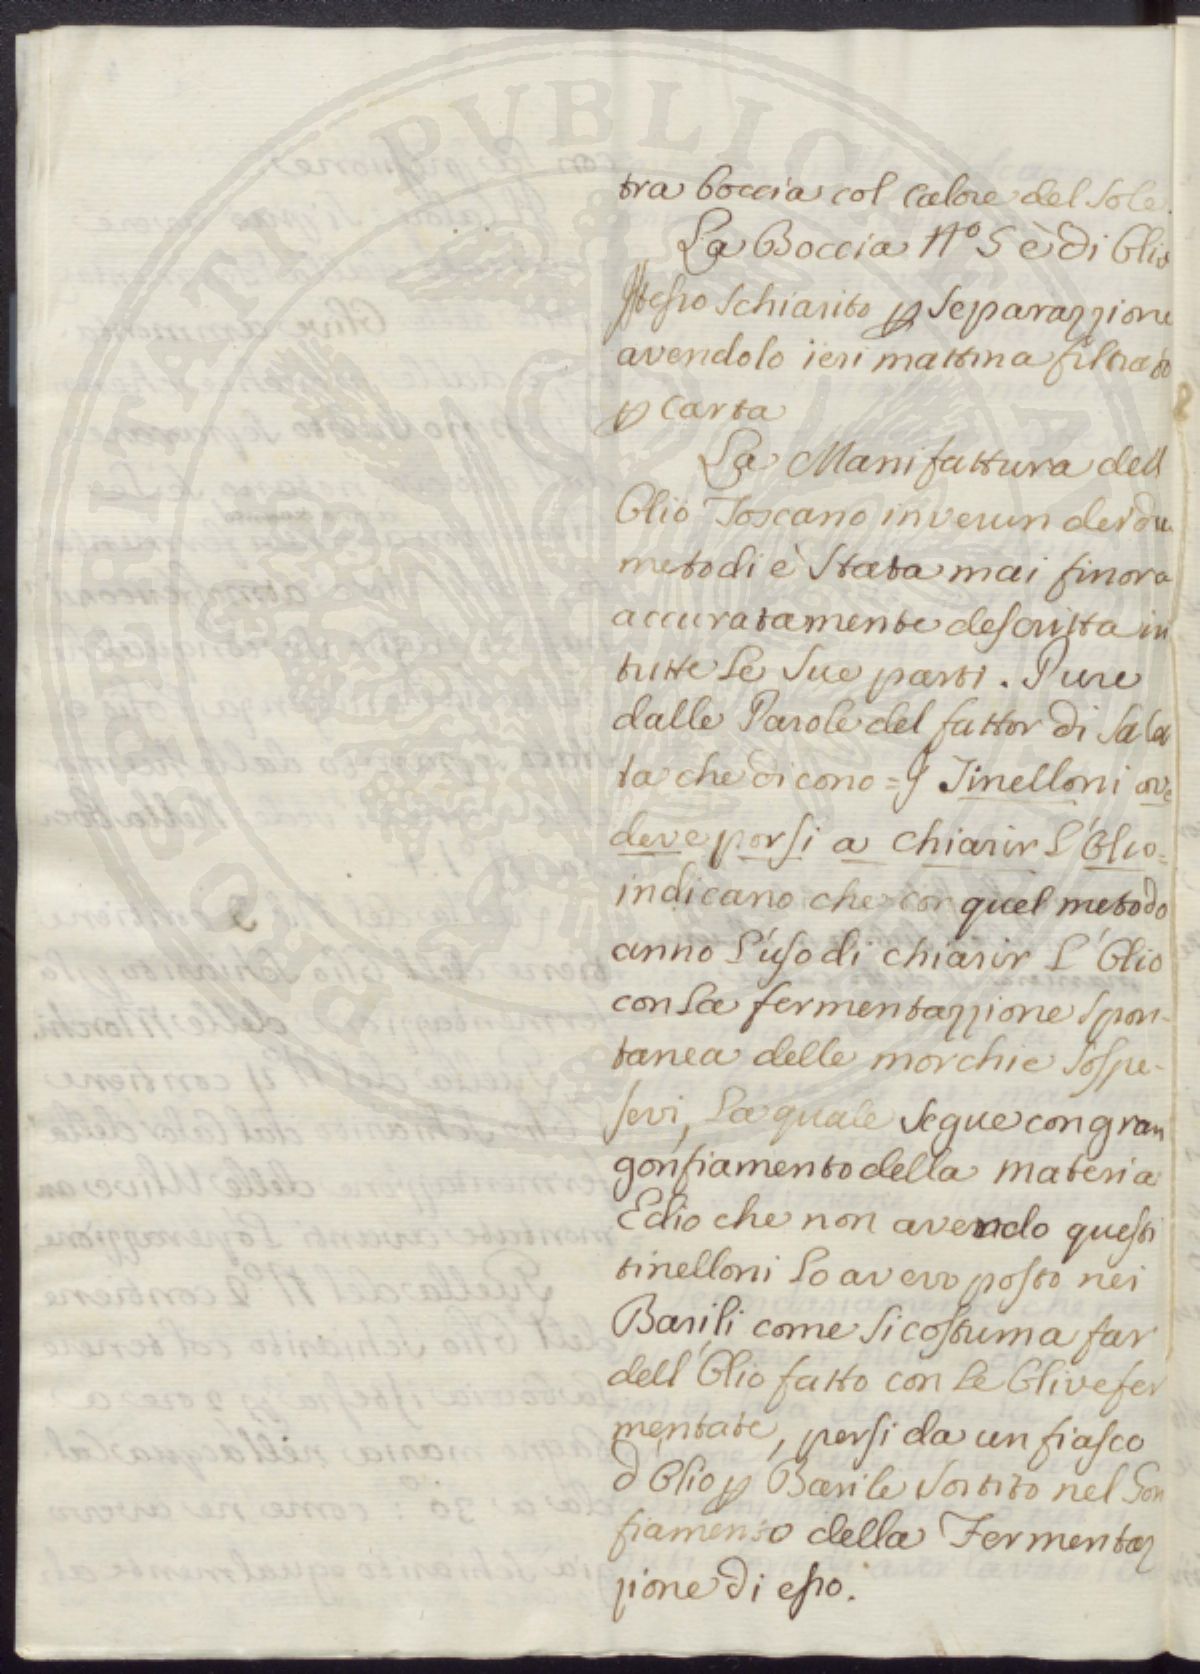 tra boccia col calore del sole.
La Boccia N.º 5 è di Olio
stesso schiarito p separazzione
avendolo ieri mattina filtrato
p carta
La Manifattura dell
Olio Toscano in verun dei du
metodi è stata mai finora
accuratamente descritta in
tutte le sue parti. Pure
dalle Parole del fattor di Sala
ta che dicono = Tinelloni ove
deve porsi a chiarir l'Olio =
indicano che con quel metodo
anno l'uso di chiarir l'Olio
con la fermentazzione spon-
tanea delle morchie sospe-
sevi, la quale segue con gran
gonfiamento della materia
Ed io che non avendo questi
tinelloni lo avevo posto nei
Barili come si costuma far
dell'Olio fatto con le Olive fer
mentate, persi da un fiasco
d Olio p Barile sortito nel Gon
fiamento della Fermentaz
zione di esso.
PROSPERITATI PUBLICAE